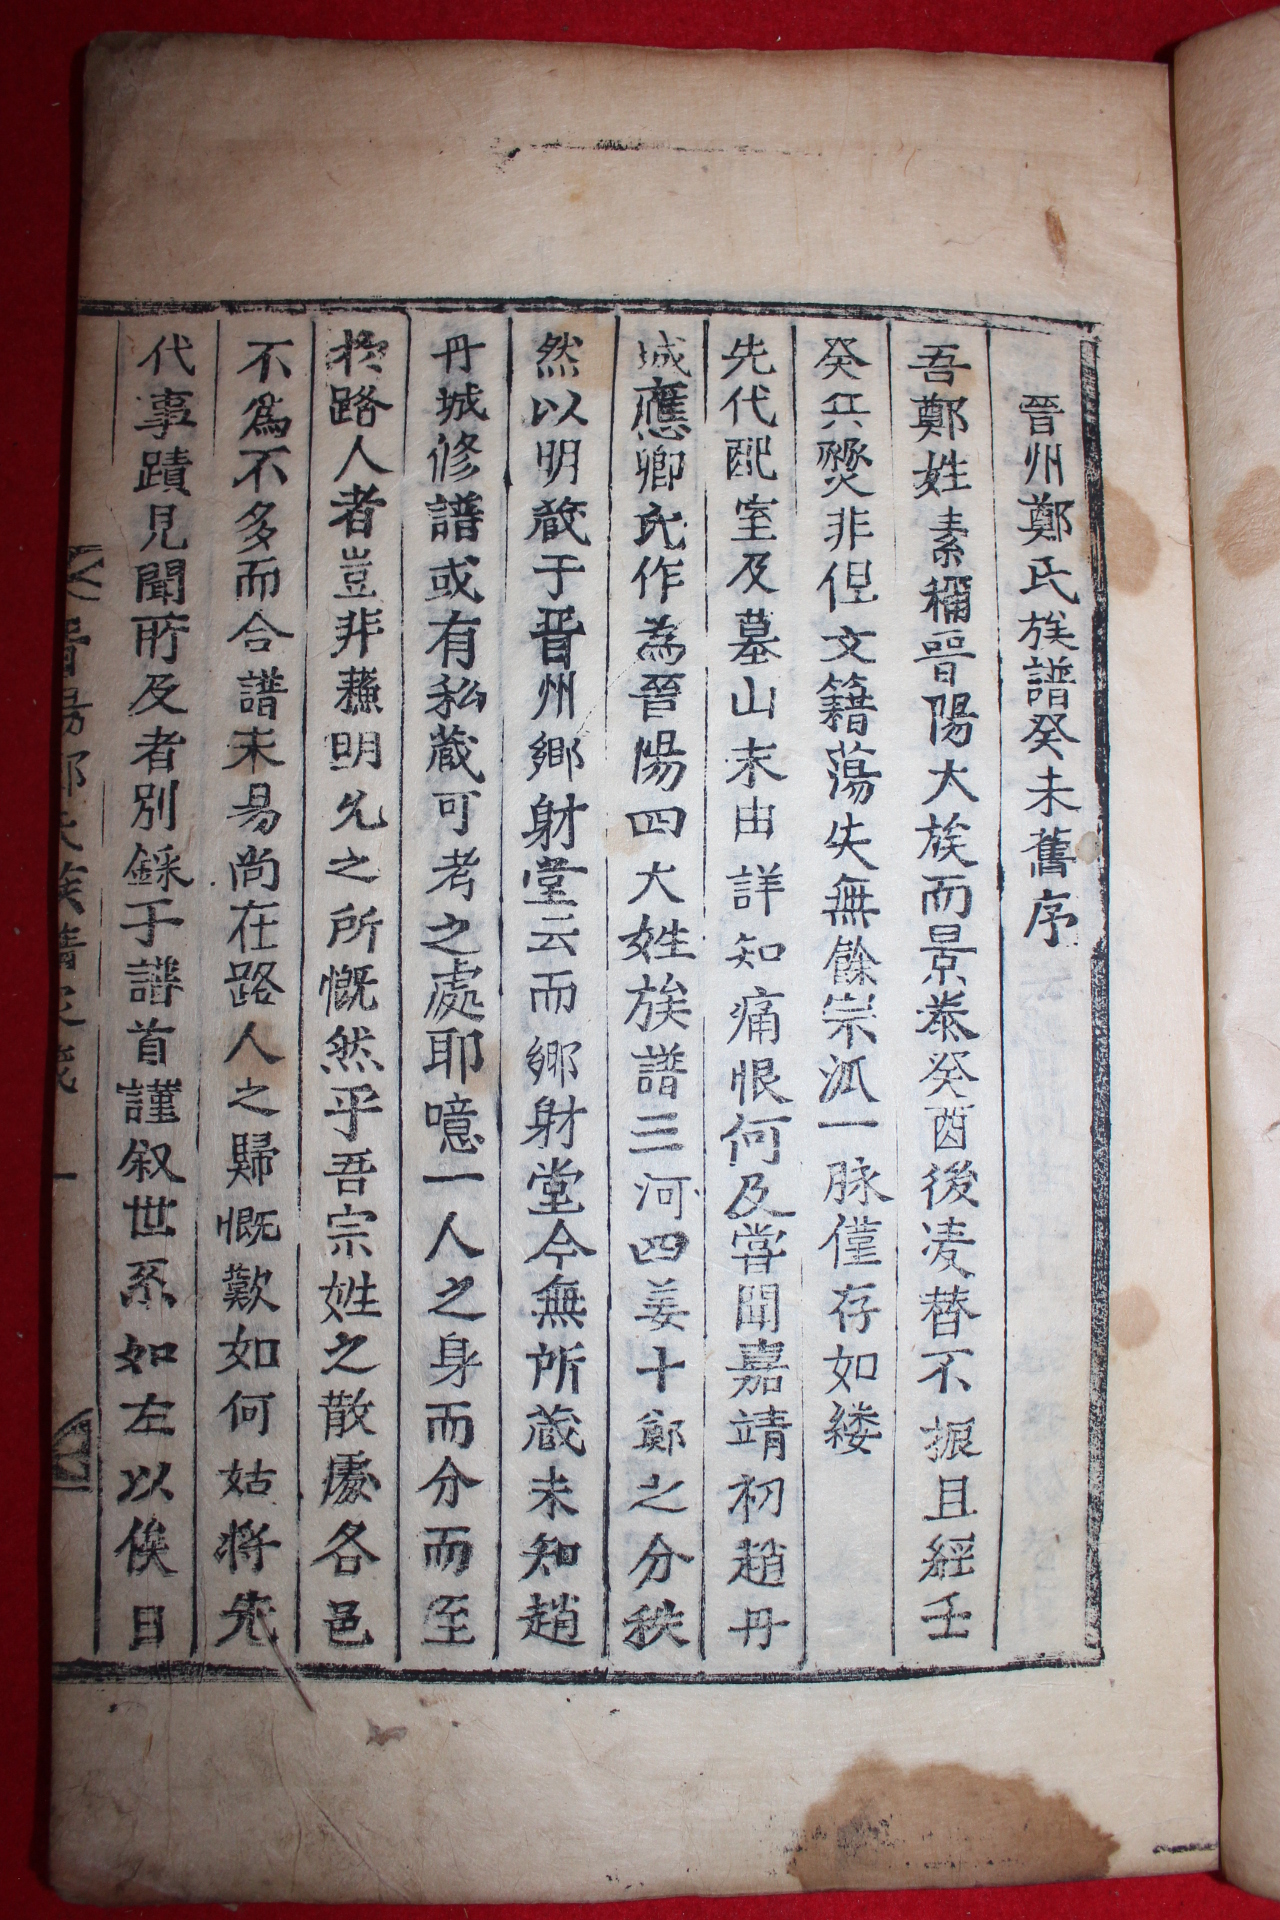 晉州鄭氏族譜癸未舊序
吾鄭姓素稱晉陽大族而景泰癸酉後凌替不振且經壬
癸兵燹非但文籍蕩失無餘宗派一脉僅存如縷
先代配室及墓山末由詳知痛恨何及嘗聞嘉靖初趙丹
城應卿氏作為晉陽四大姓族譜三河四姜十鄭之分秩
然以明蔵于晋州鄉射堂云而鄉射堂今無所蔵未知趙
丹城修譜或有私蔵可考之處耶噫一人之身而分而至
扵路人者豈非蘓明允之所慨然乎吾宗姓之散處各邑
不爲不多而合譜未易尚在路人之歸慨歎如何姑将先
代事蹟見聞所及者別録于譜首謹叙世系如左以俟日
晋陽鄭氏族譜 一